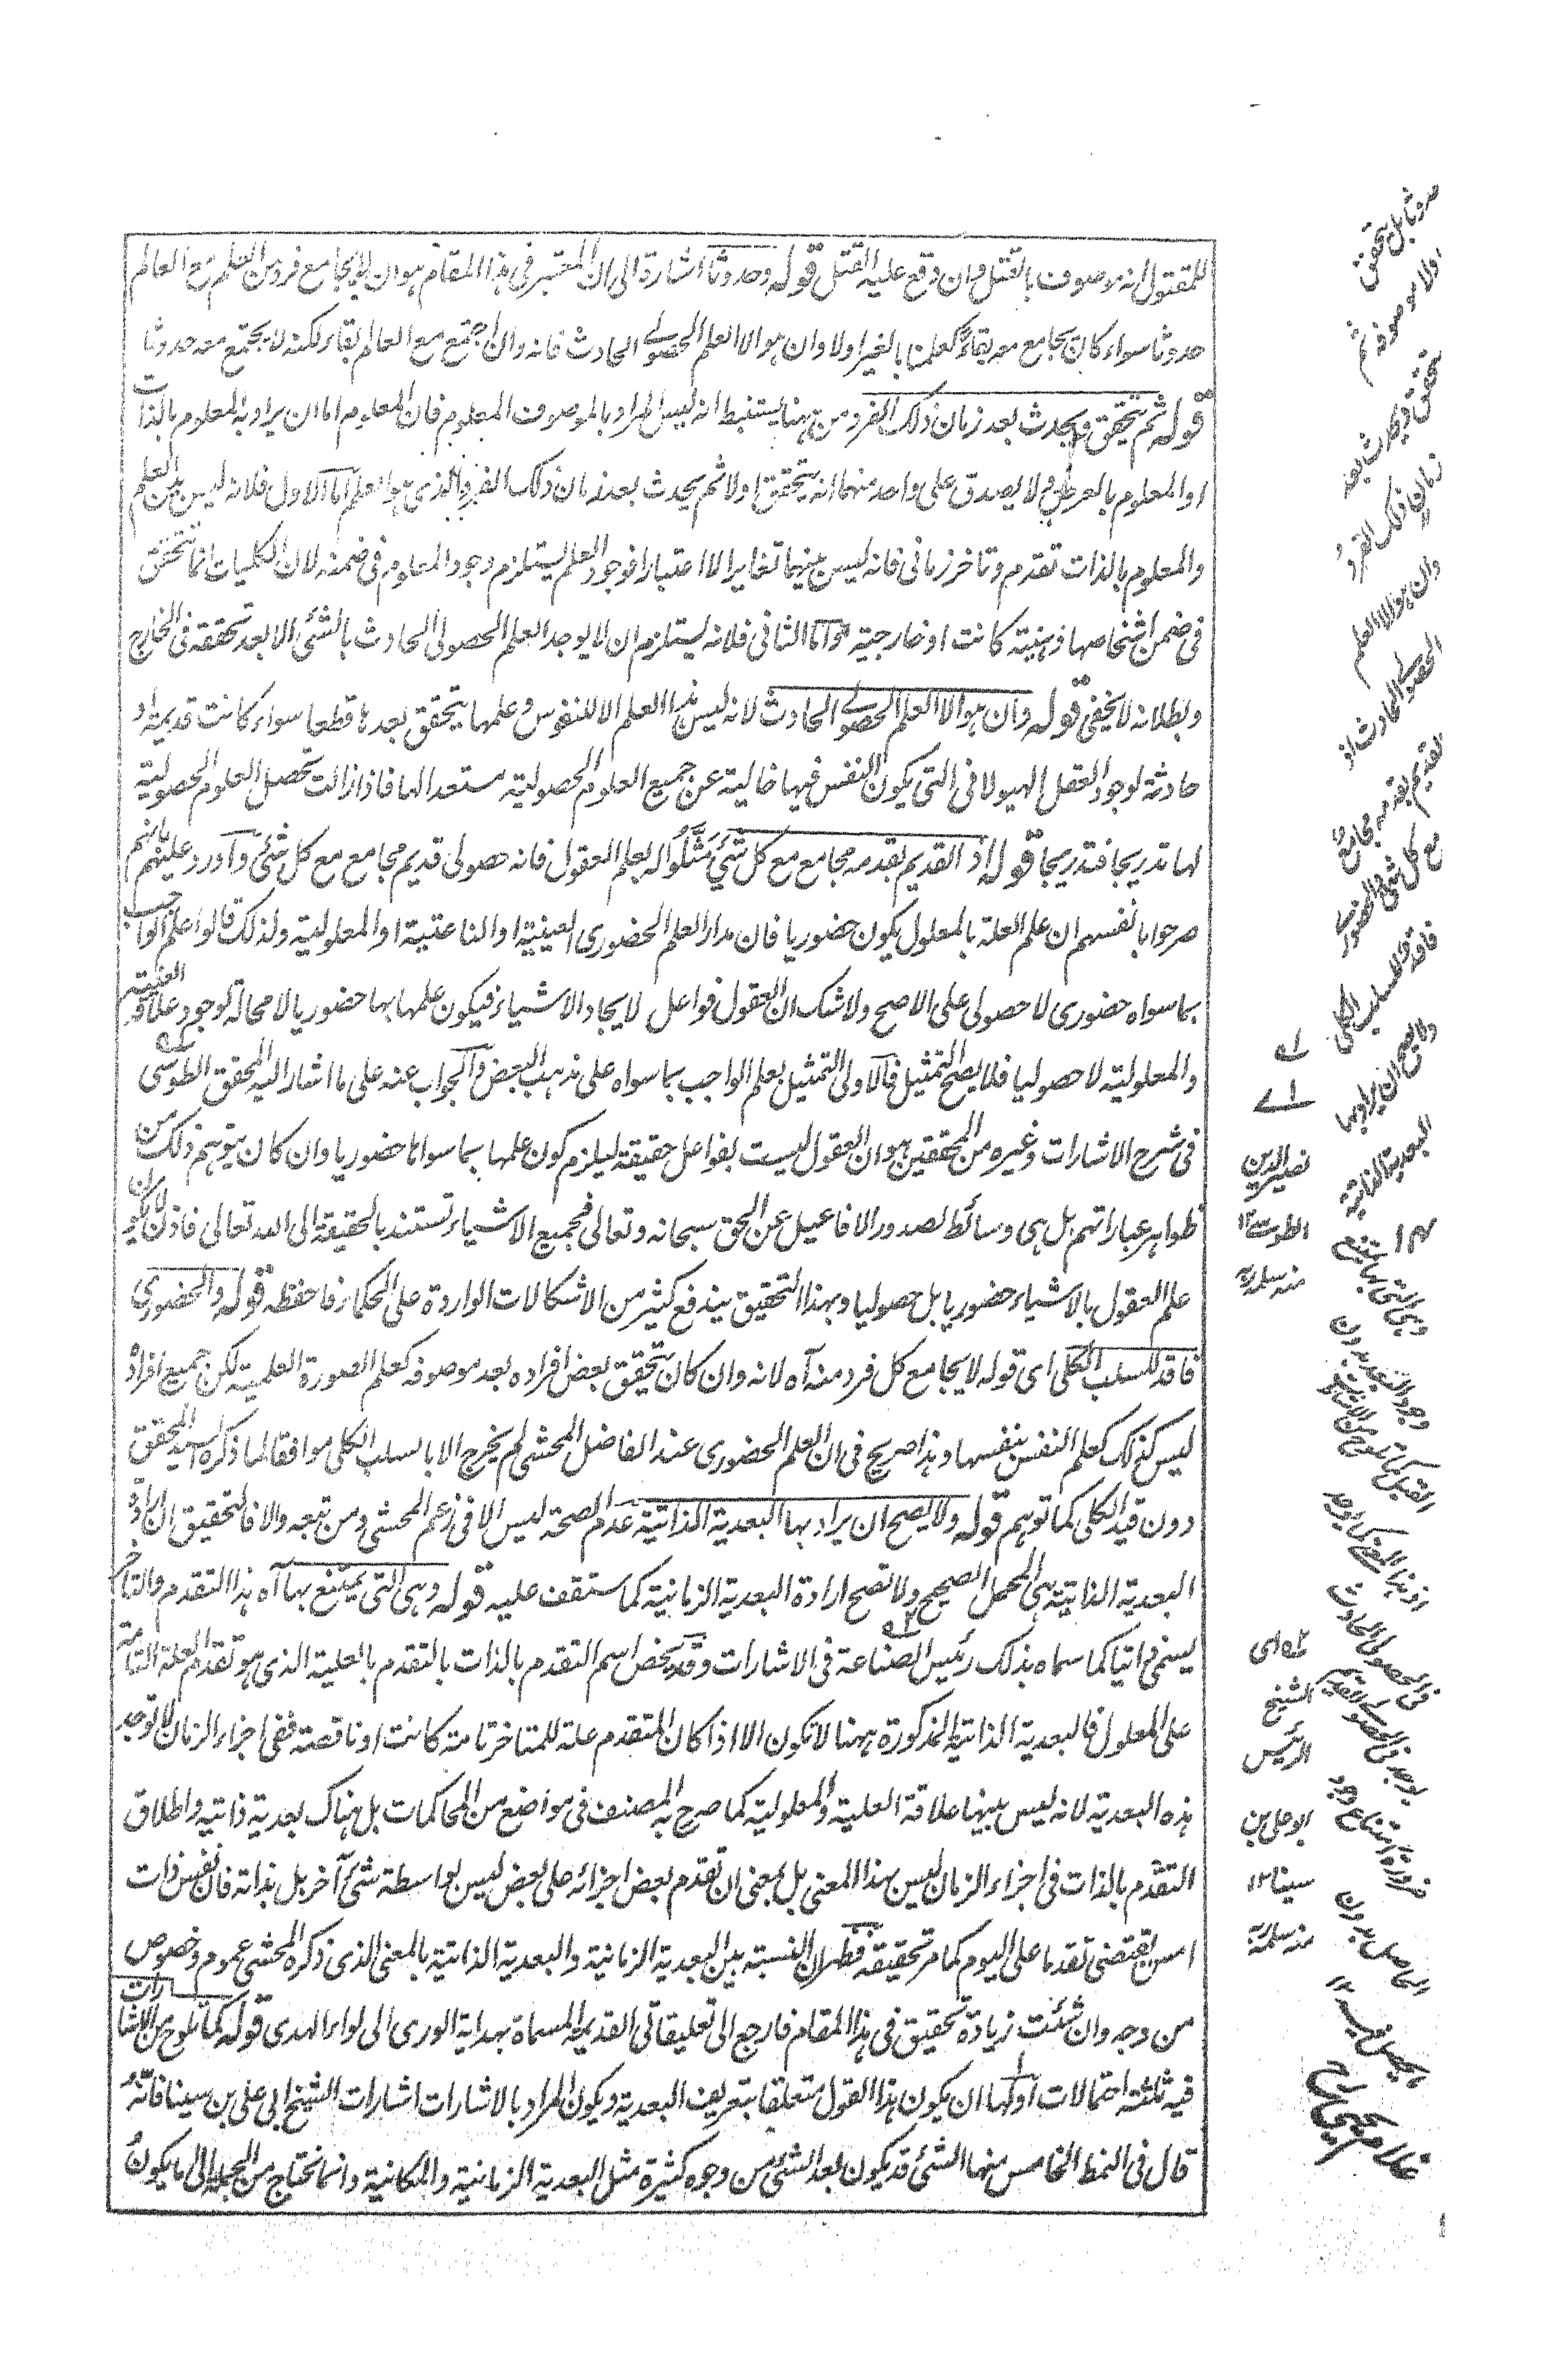 للمقتول انه موصوف بالقتل وان وقع عليه القتل قوله وحدوثا اشارة الى ان المعتبر فى هذا المقام هو ان لا يجامع فرد من العلم مع العالم
حدوثا سواء كان يجامع معه بقاء كعلمنا بالغير اولا وان هو الا العلم الحصولى الحادث فانه وان اجتمع مع العالم بقاء لكنه لا يجتمع معه حدوثا
قوله ثم يتحقق ويحدث بعد زمان ذلك الفرد من ههنا يستنبط انه ليس المراد بالموصوف المعلوم فان المعلوم اما ان يراد به المعلوم بالذات
او المعلوم بالعرض ولا يصدق على واحد منهما انه يتحقق اولا ثم يحدث بعد زمان ذلك الفرد الذى هو العلم اما الاول فلانه ليس بين العلم
والمعلوم بالذات تقدم وتاخر زمانى فانه ليس بينهما تغاير الا اعتبارا فوجود العلم يستلزم وجود المعلوم فى ضمنه لان الكليات انما تتحقق
فى ضمن اشخاصها ذهنية كانت او خارجية واما الثانى فلانه يستلزم ان لا يوجد العلم الحصولى الحادث بالشئ الا بعد تحققه فى الخارج
وبطلانه لا يخفى قوله وان هو الا العلم الحصولى الحادث لانه ليس هذا العلم الا للنفوس وعلمها يتحقق بعدها قطعا سواء كانت قديمة او
حادثة لوجود العقل الهيولانى التى يكون النفس فيها خالية عن جميع العلوم الحصولية مستعد الها فاذا زالت تحصل العلوم الحصولية
لها تدريجا فتدريجا قوله اذ القديم بقدمه مجامع مع كل شئ مثلوا له بعلم العقول فانه حصولى قديم مجامع مع كل شئ واورد عليهم بانهم
صرحوا بانفسهم ان علم العلة بالمعلول يكون حضوريا فان مدار العلم الحضورى العينية او الناعتية او المعلولية ولذلك قالوا علم الواجب
بما سواه حضورى لا حصولى على الاصح ولا شك ان العقول فواعل لايجاد الاشياء فيكون علمها بها حضوريا لا محالة لوجود علاقة العلية
والمعلولية لا حصوليا فلا يصح التمثيل فالاولى التمثيل بعلم الواجب بما سواه على مذهب البعض والجواب عنه على ما اشار اليه المحقق الطوسى
فى شرح الاشارات وغيره من المحققين هو ان العقول ليست بفواعل حقيقة ليلزم كون علمها بما سواها حضوريا وان كان يتوهم ذلك من
ظواهر عباراتهم بل هى وسائط لصدور الافاعيل عن الحق سبحانه وتعالى فجميع الاشياء تستند بالحقيقة الى الله تعالى فاذن لا يكون
علم العقول بالاشياء حضوريا بل حصوليا وبهذا التحقيق يندفع كثير من الاشكالات الواردة على الحكماء فاحفظه قوله والحضورى
فاقد للسلب الكلى اى قوله لا يجامع كل فرد منه آه لانه وان كان يتحقق بعض افراده بعد موصوفه كعلم الصورة العلمية لكن جميع افراده
ليس كذلك كعلم النفس بنفسها وهذا صريح فى ان العلم الحضورى عند الفاضل المحشى لم يخرج الا بالسلب الكلى موافقا لما ذكره السيد المحقق
دون قيد الكلى كما توهم قوله ولا يصح ان يراد بها البعدية الذاتية عدم الصحة ليس الا فى زعم المحشى ومن تبعه والا فالتحقيق ان ارادة
البعدية الذاتية هى المحمل الصحيح ولا تصح ارادة البعدية الزمانية كما ستقف عليه قوله وهى التى يمتنع بها آه هذا التقدم والتاخر
يسمى ذاتيا كما سماه بذلك رئيس الصناعة فى الاشارات وقد يخص اسم التقدم بالذات بالتقدم بالعلية الذى هو تقدم العلة التامة
على المعلول فالبعدية الذاتية المذكورة ههنا لا تكون الا اذا كان المتقدم علة للمتاخر تامة كانت او ناقصة ففى اجزاء الزمان لا توجد
هذه البعدية لانه ليس بينها علاقة العلية والمعلولية كما صرح به المصنف فى مواضع من المحاكمات بل هناك بعدية ذاتية واطلاق
التقدم بالذات فى اجزاء الزمان ليس بهذا المعنى بل بمعنى ان تقدم بعض اجزائه على بعض ليس بواسطة شئ آخر بل بذاته فان نفس ذات
امس يقتضى تقدما على اليوم كما مر تحقيقه فظهر ان النسبة بين البعدية الزمانية والبعدية الذاتية بالمعنى الذى ذكره المحشى عموم وخصوص
من وجه وان شئت زيادة تحقيق فى هذا المقام فارجع الى تعليقاتى القديمة المسماة بهداية الورى الى لواء الهدى قوله كما تلوح من الاشارات
فيه ثلثة احتمالات اولها ان يكون هذا القول متعلقا بتعريف البعدية ويكون المراد بالاشارات اشارات الشيخ ابى على بن سينا فانه
قال فى النمط الخامس منها الشئ قد يكون بعد الشئ من وجوه كثيرة مثل البعدية الزمانية والمكانية وانما نحتاج من الجملة الى ما يكون
حدوثا بل يتحقق
اولا موصوفه ثم
يتحقق ويحدث بعد
زمان ذلك الفرد
وان هو الا العلم
الحصولى الحادث اذ
القديم بقدمه مجامع
مع كل شئ والحضورى
فاقد للسلب الكلى
ولا يصح ان يراد بها
البعدية الذاتية
وهى التى يمتنع بها
وجود البعد بدون
القبل كما تلوح من الاشارات
غلام يحيى
نصير الدين
الطوسى ١٢
منه سلمه ربه
اى
الشيخ
الرئيس
ابو على بن
سينا ١٢
منه سلمه ربه